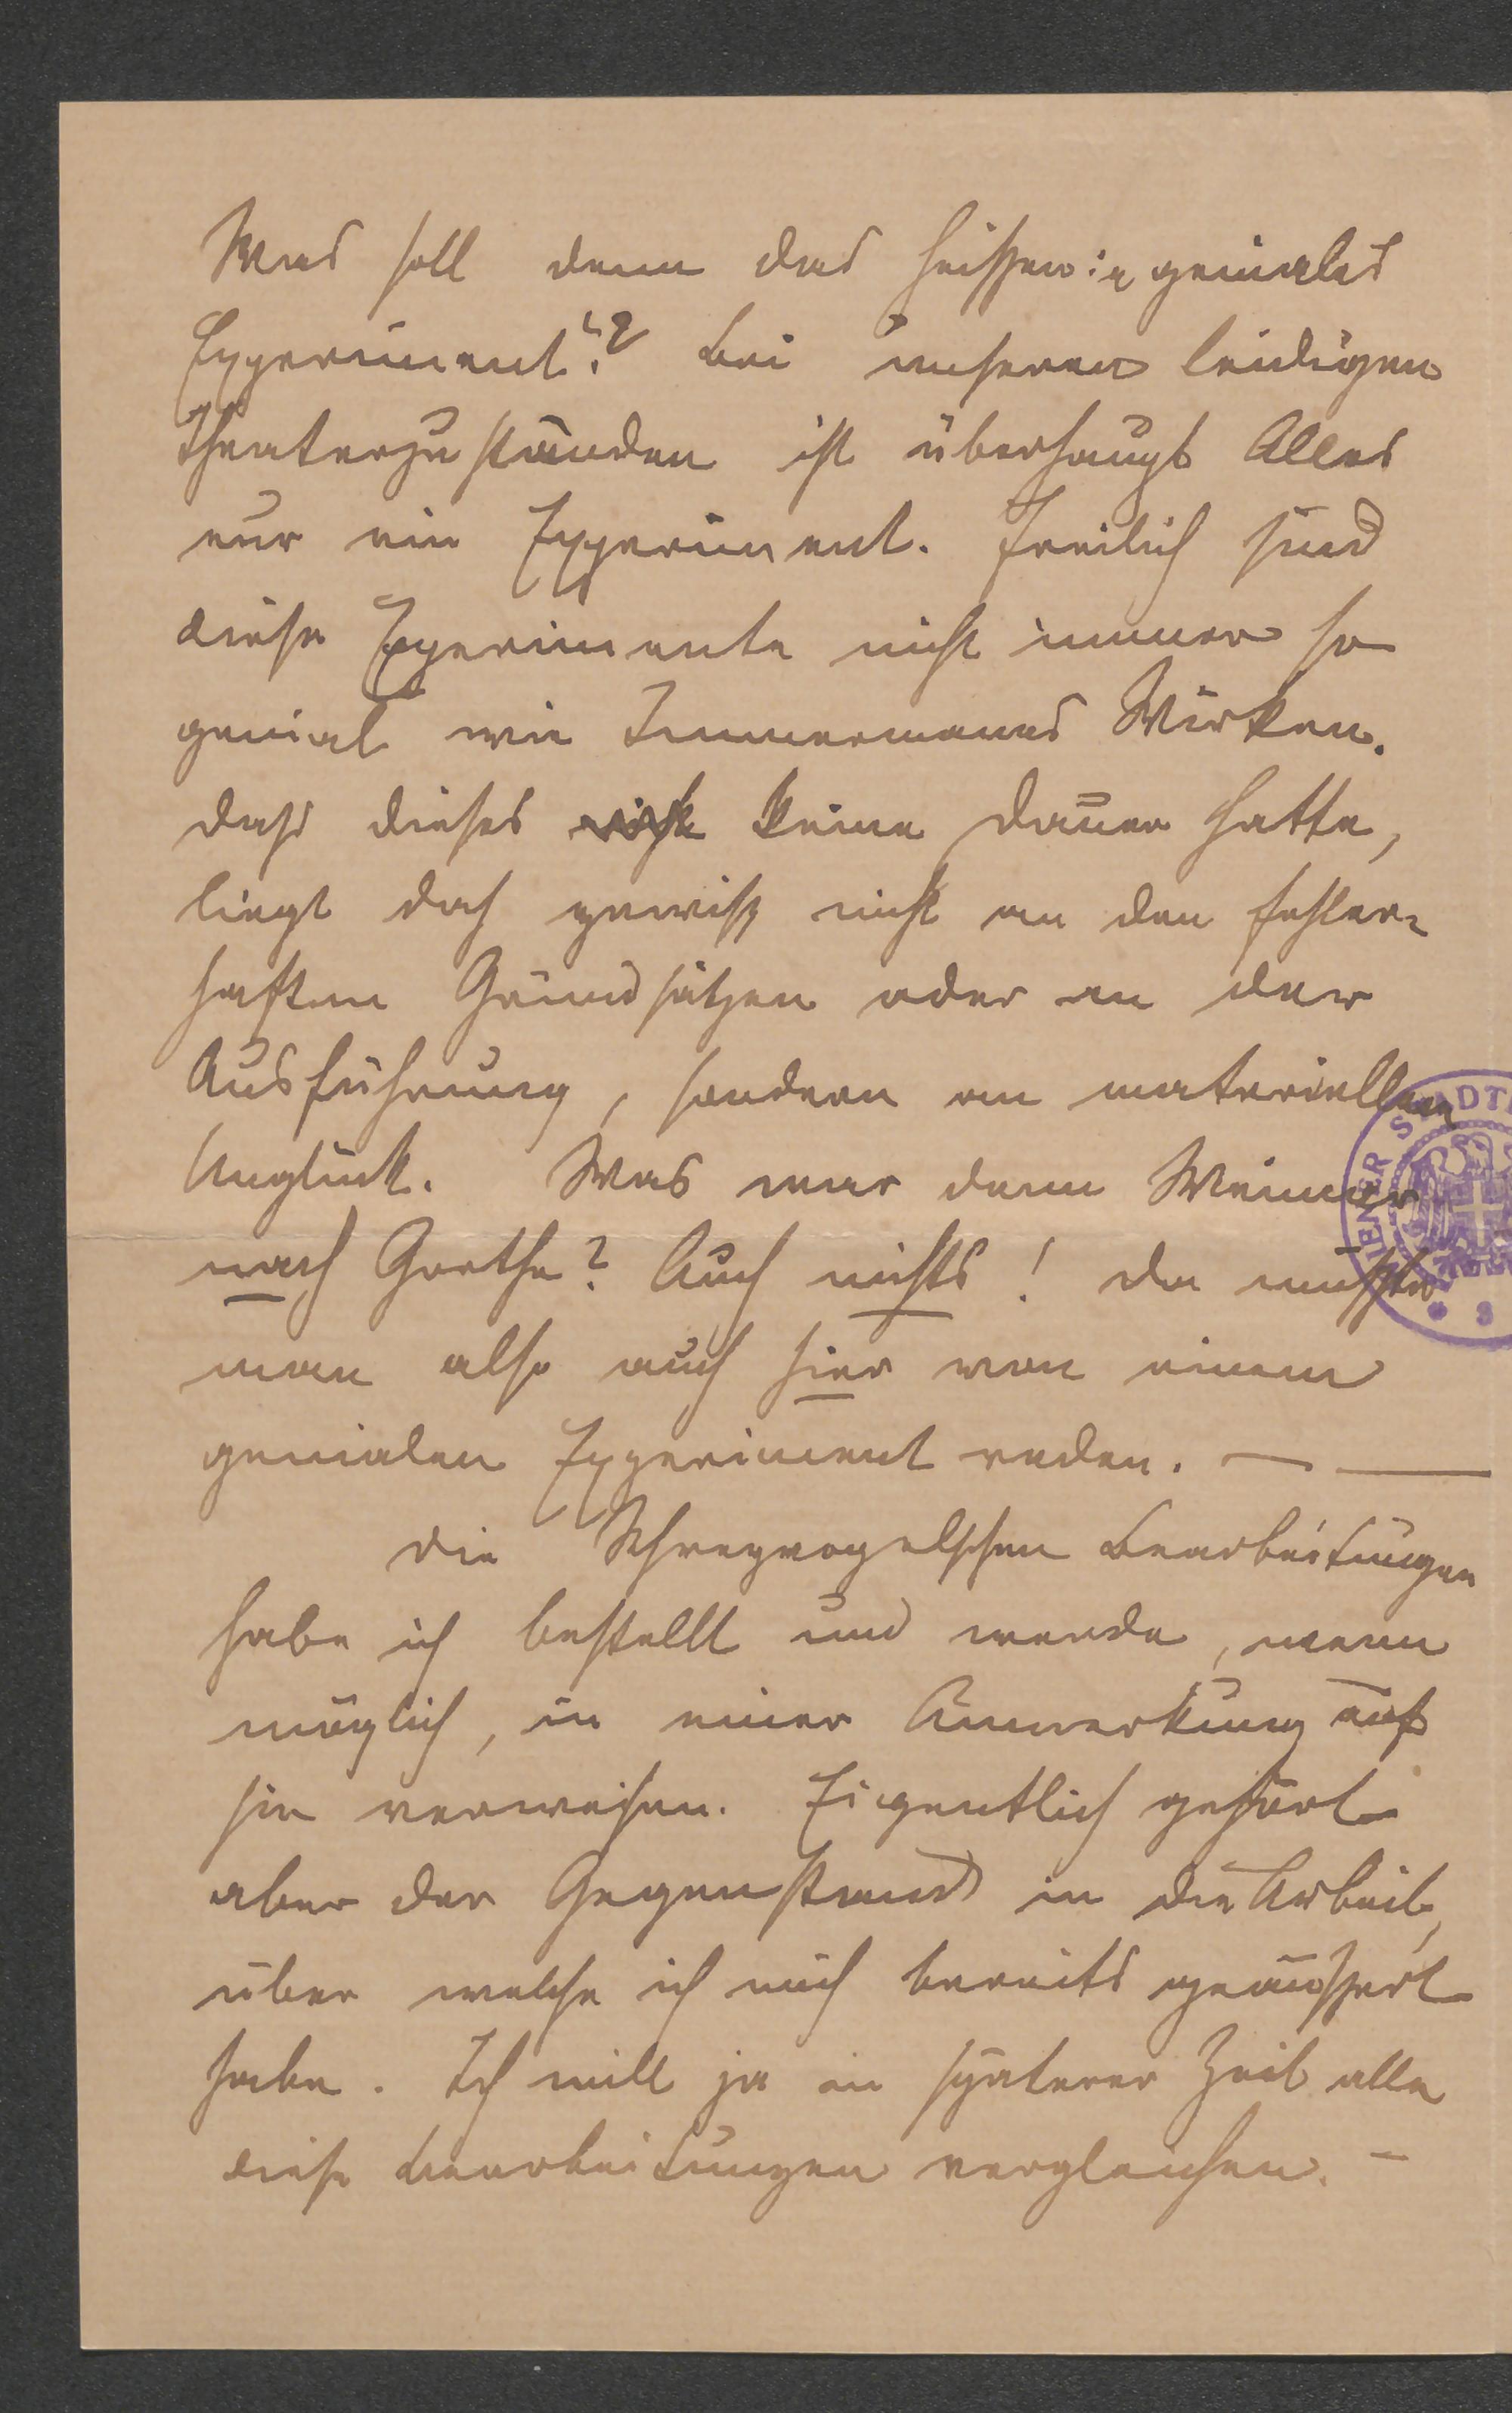 Was soll denn das heißen: „geniales
Experiment“? Bei unseren leidigen
Theaterzuständen ist überhaupt Alles
nur ein Experiment. Freilich sind
diese Experimente nicht immer so
genial wie Immermanns Wirken.
Dass dieses nicht keine Dauer hatte,
liegt doch gewiß nicht an den fehler-
haften Grundsätzen oder an der
Ausführung, sondern am materiellen
Unglück. Was war denn Weimar
nach Goethe? Auch nichts! Da müßte
man also auch hier von einem
genialen Experiment reden. — —
Die Schreyvogelschen Bearbeitungen
habe ich bestellt und werde, wenn
möglich, in einer Anmerkung auf
sie verweisen. Eigentlich gehört
aber der Gegenstand in die Arbeit,
über welche ich mich bereits geäußert
habe. Ich will ja in späterer Zeit alle
diese Bearbeitungen vergleichen. —